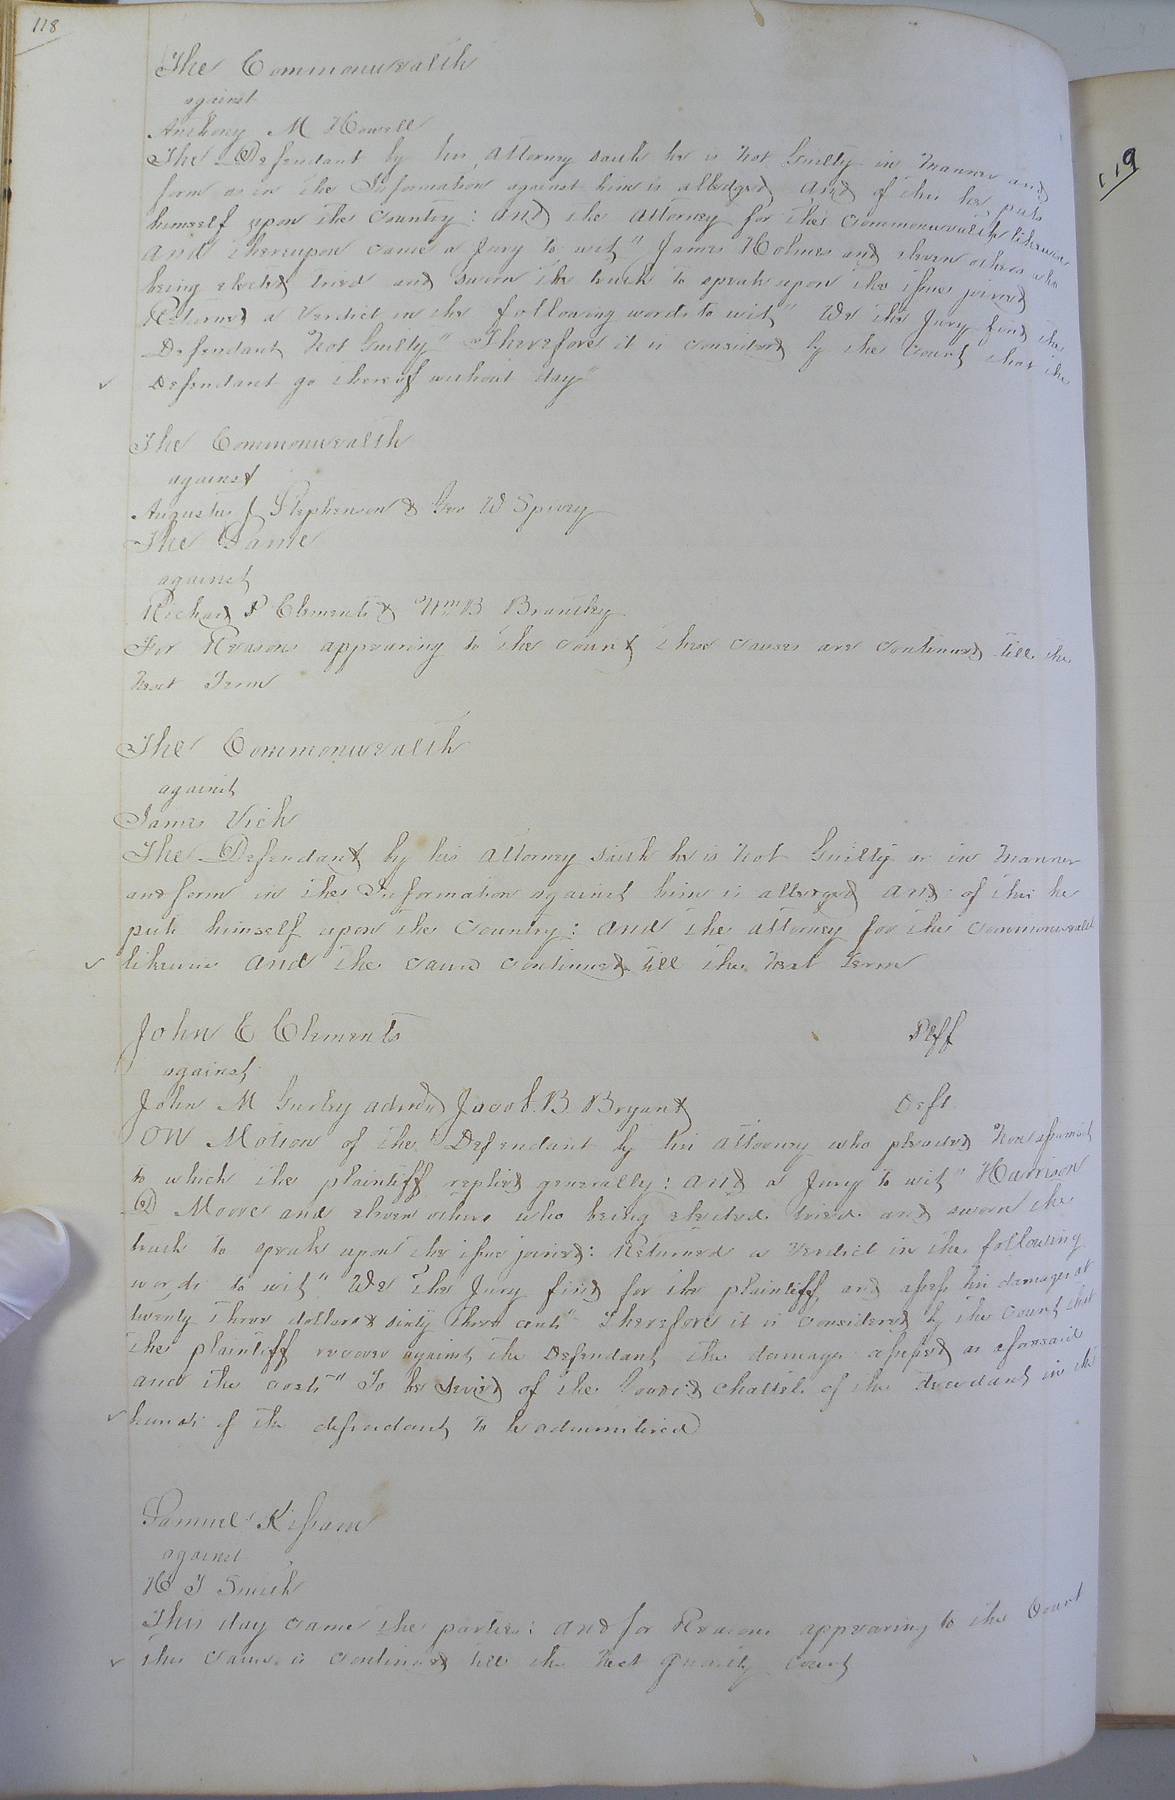 118
The Commonwealth
against
Anthony M Howell
The Defendant by his attorney saith he is Not Guilty in Manner and
form as in the Information against him is alledged and of this he puts
himself upon the Country: and the attorney for the Commonwealth likewise
and thereupon came a Jury to wit" James Holmes and eleven others who
being elected tried and sworn the truth to speak upon the issue joined
Returned a Verdict in the following words to wit" We the Jury find the
Defendant Not Guilty" Therefore it is considered by the Court that the
Defendant go thereof without day"
The Commonwealth
against
Augustus J Stephenson & Geo W Spivey
The Same
against
Richard P Clements & Wm B Brantley
For Reasons appearing to the Court these causes are continued till the
Next Term
The Commonwealth
against
James Vick
The Defendant by his attorney saith he is Not Guilty in Manner
and form in the Information against him is alledged and of this he
puts himself upon the Country: and the attorney for the Commonwealth
likewise and the cause continued till the Next Term
John E Clements Plff
against
John M Gurley admr Jacob B. Bryant Deft
ON Motion of the Defendant by his attorney who pleaded Non assumpsit
to which the plaintiff replied generally: and a Jury to wit" Harrison
Moore and eleven others who being elected tried and sworn the
truth to speak upon the issue joined: Returned a Verdict in the following
words to wit" We the Jury find for the plaintiff and assess his damages at
twenty three dollars & sixty three cents" Therefore it is considered by the Court that
the plaintiff recover against the Defendant the damages assessed as aforesaid
and the costs" To be levied of the Goods & Chattels of the decedant in the
hands of the defendant to be administered
Samuel Kissam
against
H T Smith
This day came the parties: and for Reasons appearing to the Court
this cause is continued till the Next Quarterly Court
119